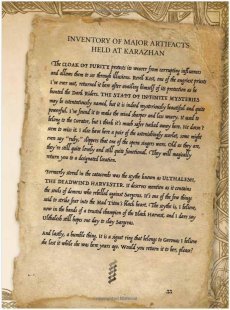 INVENTORY OF MAJOR ARTIFACTS
HELD AT KARAZHAN
The CLOAK OF PURITY protects its wearer from corrupting influences
and allows them to see through illusions. Revil Kost, one of the ancient priests
I've ever met, returned it here after availing himself of its protection as he
hunted the Dark Riders. THE STAFF OF INFINITE MYSTERIES
may be ostentatiously named, but it is indeed mysteriously beautiful and quite
powerful. I've found it to make the mind sharper and less weary. It used to
belong to the curator, but I think it's much safer tucked away here,
seem to miss it. I also have here a pair of the astonishingly
even say "ruby," slippers that one of the opera singers wore. Odd as they are,
they're still quite lovely and still quite functional. They will magically
return you to a designated location.
Formerly stored in the catacombs was the scythe known as ULTHALESH,
THE DEADWIND HARVESTER. It deserves mention as it contains
the souls of demons who rebelled against Sargeras. It's one of the few things
said to strike fear into the Mad Titan's black heart. The scythe is, I believe,
now in the hands of a trusted champion of the Black Harvest, and I dare say
Ulthalesh still hopes one day to slay Sargeras.
And lastly, a humble thing, it is a signet ring that belongs to Garona; I believe
she lost it while she was here years ago. Would you return it to her, please?
33